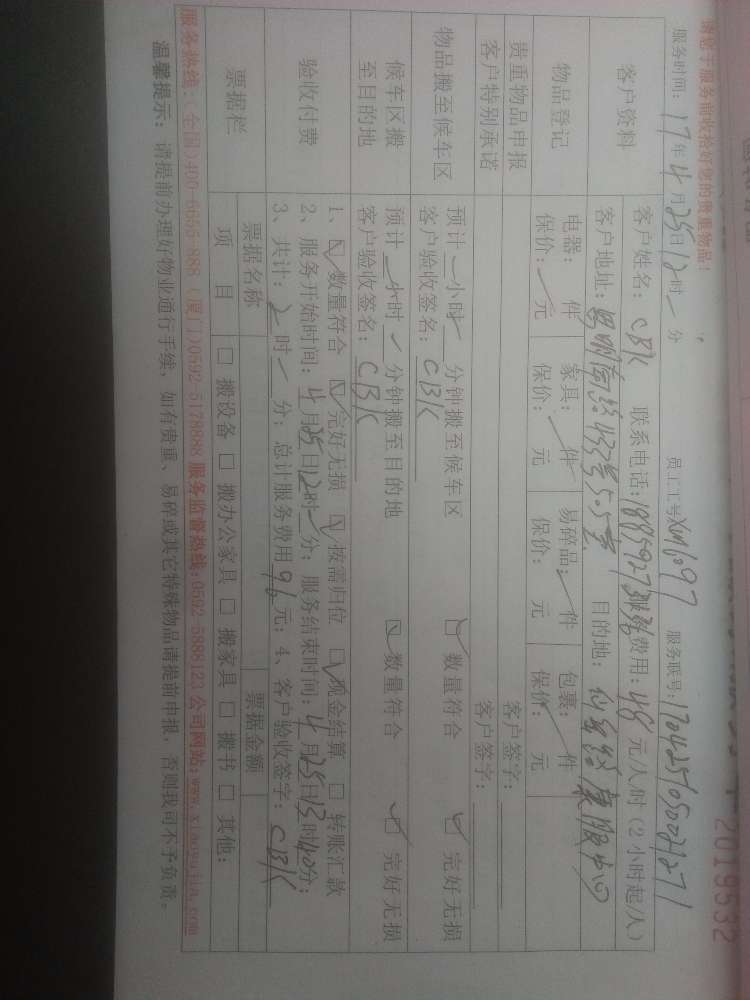 2019532
请您于服务前收拾好您的贵重物品!
服务时间: 17年4月25日12时 分 员工工号 XM6097 服务联号:
客户资料 客户姓名: CBK 联系电话: 费用: 48 元/人时(2小时起/人)
客户地址: 目的地:
物品登记 电器: 件 家具: 件 易碎品: 件 包裹: 件
保价: 元 保价: 元 保价: 元 保价: 元
贵重物品申报 客户签字:
客户特别承诺 客户签字:
物品搬至候车区 预计 小时 分钟搬至候车区 数量符合 完好无损
客户验收签名: CBK
候车区搬至目的地 预计 小时 分钟搬至目的地 数量符合 完好无损
客户验收签名: CBK
验收付费 1、 数量符合 完好无损 按需归位 现金结算 转账汇款
2、服务开始时间: 4月25日12时 分; 服务结束时间: 4月25日13时40分;
3、共计: 2时 分; 总计服务费用 96 元; 4、客户验收签字: CBK
票据栏 票据名称 票据金额
项 目 搬设备 搬办公家具 搬家具 搬书 其他:
服务热线:(全国)400-6655-888 (厦门)0592-5178888 服务监督热线:0592-5888123 公司网站:www.xiaoyujia.com
温馨提示: 请提前办理好物业通行手续, 如有贵重、易碎或其它特殊物品请提前申报, 否则我司不予负责。